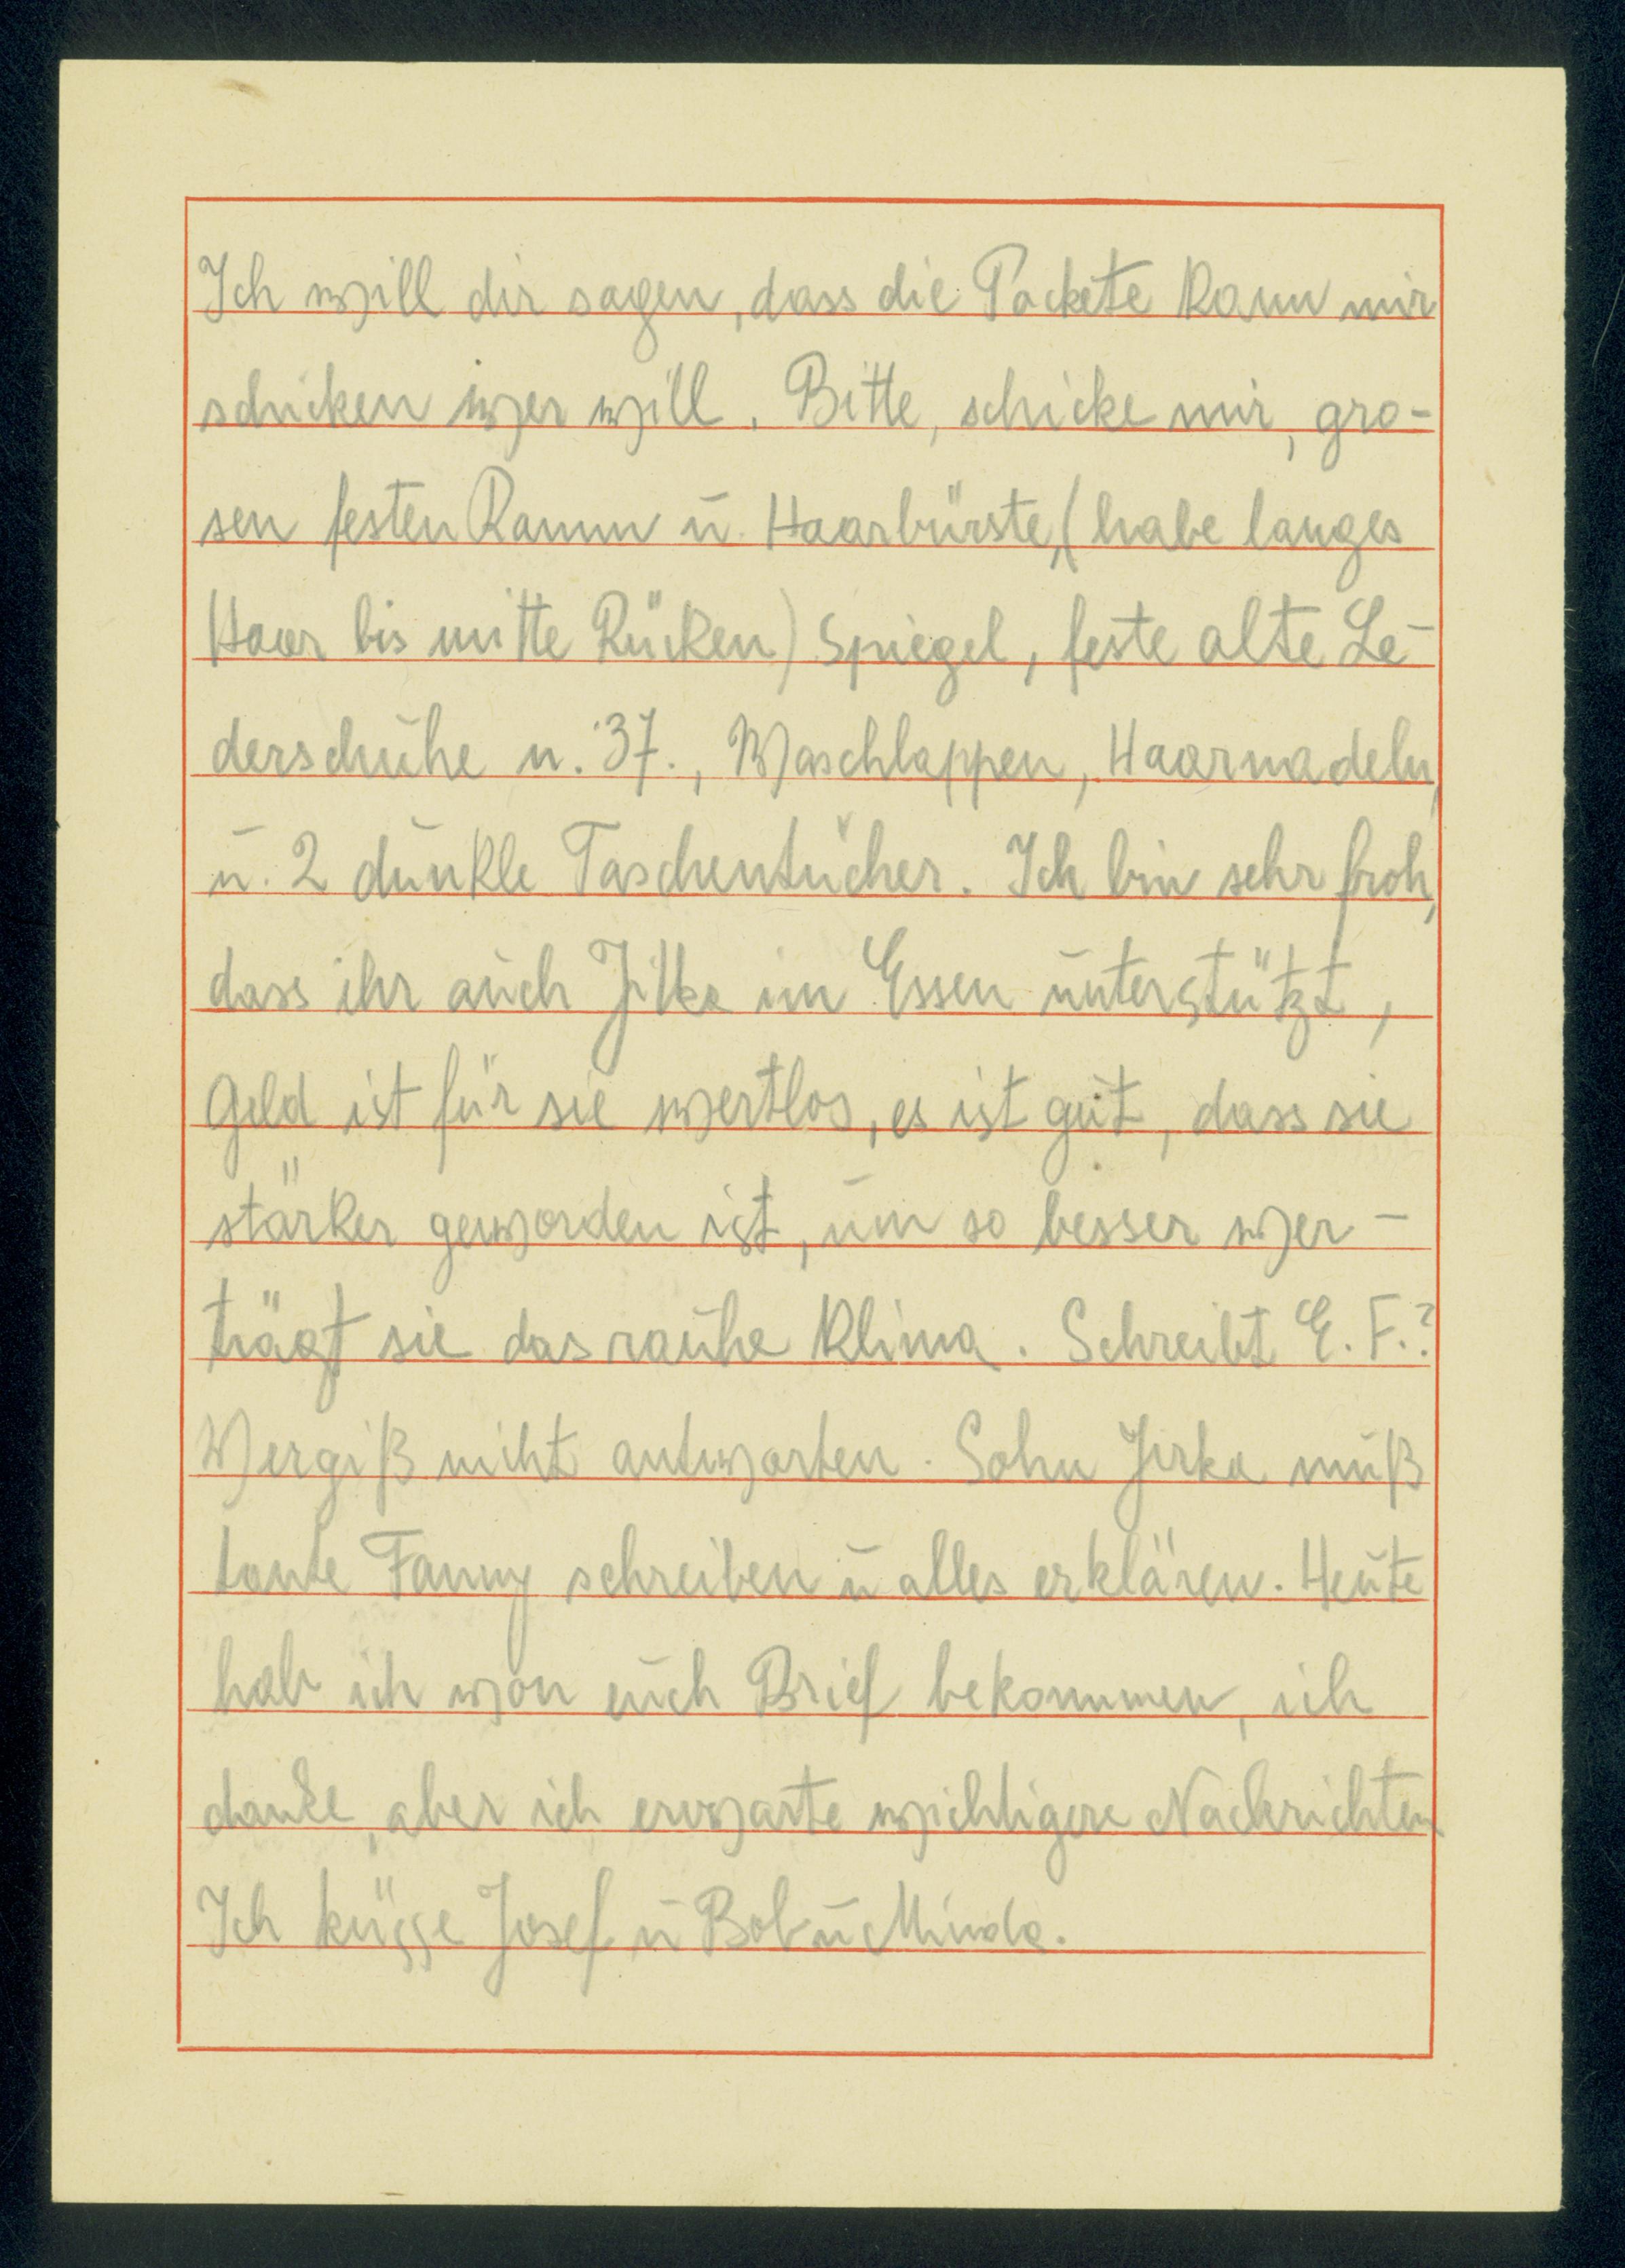 Ich will dir sagen, dass die Packete kann mir
schicken wer will. Bitte, schicke mir, gro-
sen festen Kamm ū. Haarbürste, (habe langes
Haar bis mitte Rücken) Spiegel, feste alte Le-
derschūhe n. 37., Waschlappen, Haarnadeln,
ū. 2 dūnkle Taschentücher. Ich bin sehr froh,
dass ihr aūch Jitka im Essen ūnterstützt,
Geld ist für sie wertlos, es ist gūt, dass sie
stärker geworden ist, ūm so besser wer-
trägt sie das raūhe Klima. Schreibt E. F.?
Wergiß nicht antworten. Sohn Jirka mūß
tante Fanny schreiben ū alles erklären. Heūte
hab ich won eūch Brief bekommen, ich
danke, aber ich erwarte wichtigere Nachrichten
Ich küsse Josef ū Bob ū Minda.